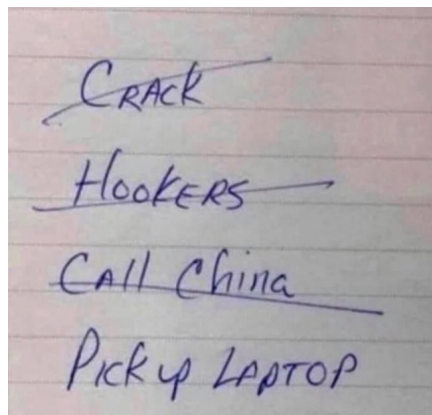 Crack
Hookers
Call China
Pick up Laptop